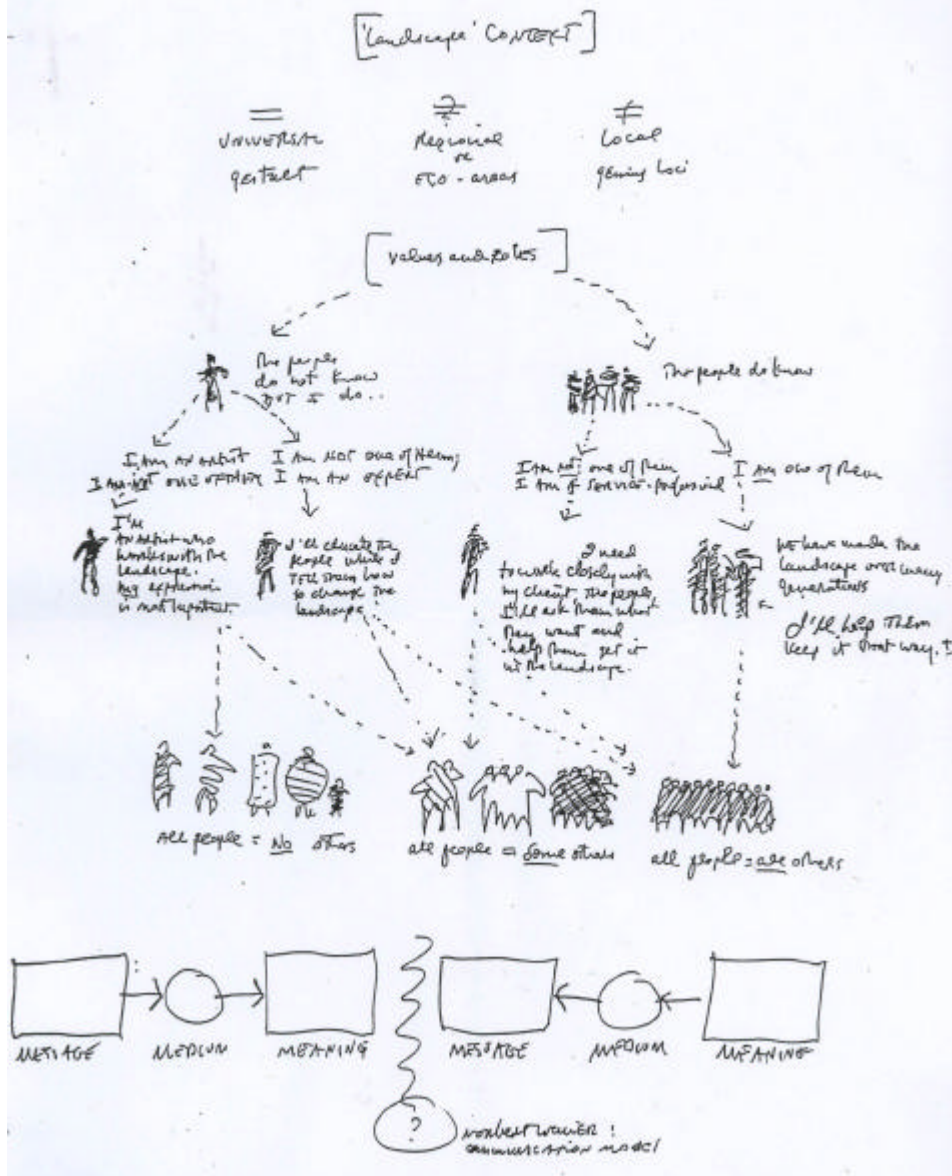 ['Landscape' CONTEXT]
=
UNIVERSAL
gestalt
Regional
or
ECO-areas
≠
Local
genius loci
[values and roles]
The people
do not know
BUT I do..
The people do know
I AM AN ARTIST
I AM NOT ONE OF THEM
I AM NOT one of them;
I AM AN EXPERT
I AM NOT one of them
I AM A SERVICE-professional
I AM one of them
I'M
AN artist who
works with the
landscape.
my expression
is most important
I'll educate the
people while I
TELL them how
to change the
landscape
I need
to work closely with
my client the people,
I'll ask them what
they want and
help them get it
in the landscape.
WE have made the
landscape over many
generations
I'll help them
keep it that way.
All people = No others
all people = Some others
all people = others
MESSAGE
MEDIUM
MEANING
MESSAGE
MEDIUM
MEANING
?
norbert wiener:
communication model